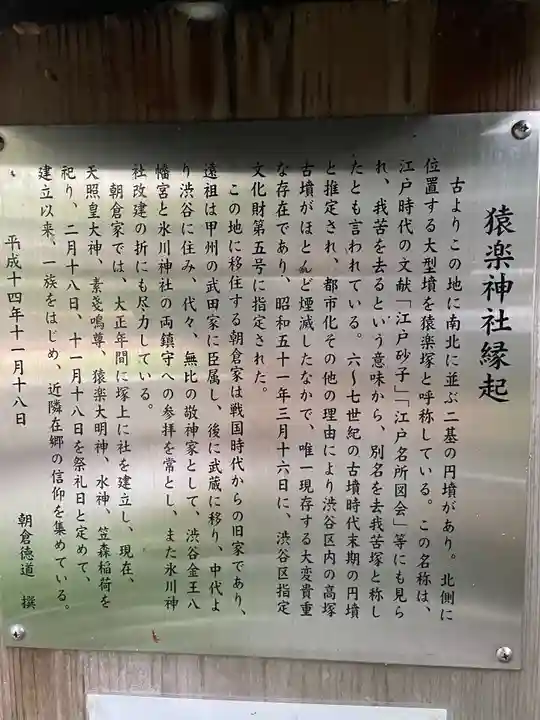 猿楽神社縁起
古よりこの地に南北に並ぶ二基の円墳があり。北側に
位置する大型墳を猿楽塚と呼称している。この名称は、
江戸時代の文献「江戸砂子」「江戸名所図会」等にも見ら
れ、我苦を去るという意味から、別名を去我苦塚と称し
たとも言われている。六〜七世紀の古墳時代末期の円墳
と推定され、都市化その他の理由により渋谷区内の高塚
古墳がほとんど煙滅したなかで、唯一現存する大変貴重
な存在であり、昭和五十一年三月十六日に、渋谷区指定
文化財第五号に指定された。
この地に移住する朝倉家は戦国時代からの旧家であり、
遠祖は甲州の武田家に臣属し、後に武蔵に移り、中代よ
り渋谷に住み、代々、無比の敬神家として、渋谷金王八
幡宮と氷川神社の両鎮守への参拝を常とし、また氷川神
社改建の折にも尽力している。
朝倉家では、大正年間に塚上に社を建立し、現在、
天照皇大神、素戔嗚尊、猿楽大明神、水神、笠森稲荷を
祀り、二月十八日、十一月十八日を祭礼日と定めて、
建立以来、一族をはじめ、近隣在郷の信仰を集めている。
平成十四年十一月十八日
朝倉徳道 撰